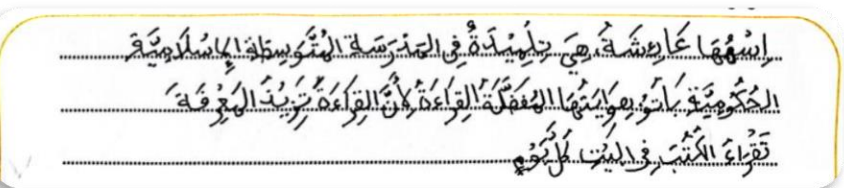 اِسْمُهَا عَائِشَةُ، هِيَ تِلْمِيْذَةٌ فِي المَدْرَسَةِ المُتَوَسِطَةِ الإِسْلَامِيَّةِ
الحُكُوْمِيَّةِ هِوَايَتُهَا المُفَضَّلَةُ القِرَاءَةُ لِأَنَّ القِرَاءَةَ تَزِيْدُ المَعْرِفَةَ
تَقْرَاءُ الكُتُبَ فِي البَيْتِ كُلَّ يَوْمٍ